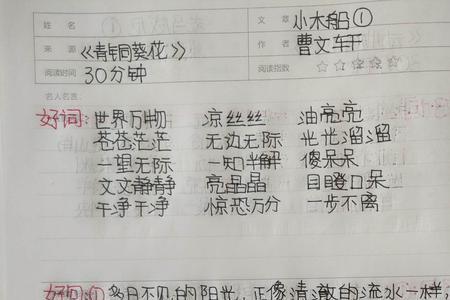 姓名 文章 小木船①
来源 《青铜葵花》 作者 曹文轩
阅读时间 30分钟 阅读指数 ☆☆☆☆☆
名人名言:
好词: 世界万物 凉丝丝 油亮亮
苍苍茫茫 无边无际 光光溜溜
一望无际 一知半解 傻呆呆
文文静静 亮晶晶 目瞪口呆
干净干净 惊恐万分 一步不离
好句:① 多日不见的阳光,正像清澈的流水一样,